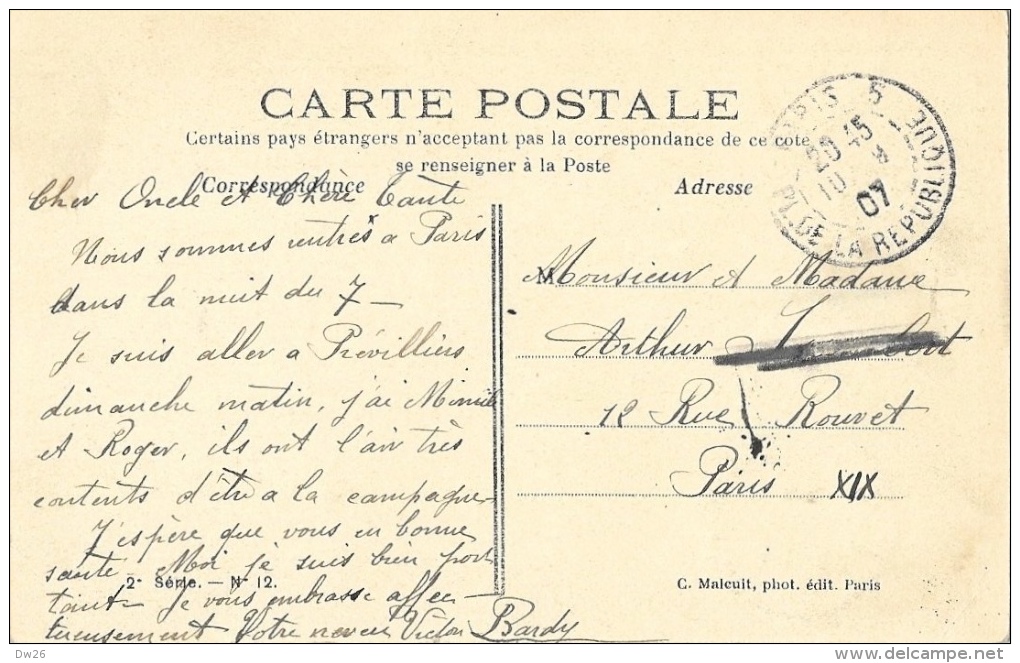 CARTE POSTALE
Certains pays étrangers n'acceptent pas la correspondance de ce cote
se renseigner à la Poste
Correspondance
Adresse
PARIS 5 PL. DE LA REPUBLIQUE
20 45
10 8
07
Cher Oncle et Chère Tante
Nous sommes rentrés a Paris
dans la nuit du 7 —
Je suis aller a Prévilliers
dimanche matin, j'ai
et Roger, ils ont l'air très
contents d'être a la campagne
J'espère que vous en bonne
santé. Moi je suis bien port
tant. Je vous embrasse affec —
tueusement Votre neveu Victor Bardy
M Monsieur et Madame
Arthur
12 Rue Rouvet
Paris XIX
2e Série. — No 12.
C. Malcuit, phot. édit. Paris
Dw26
delcampe.net